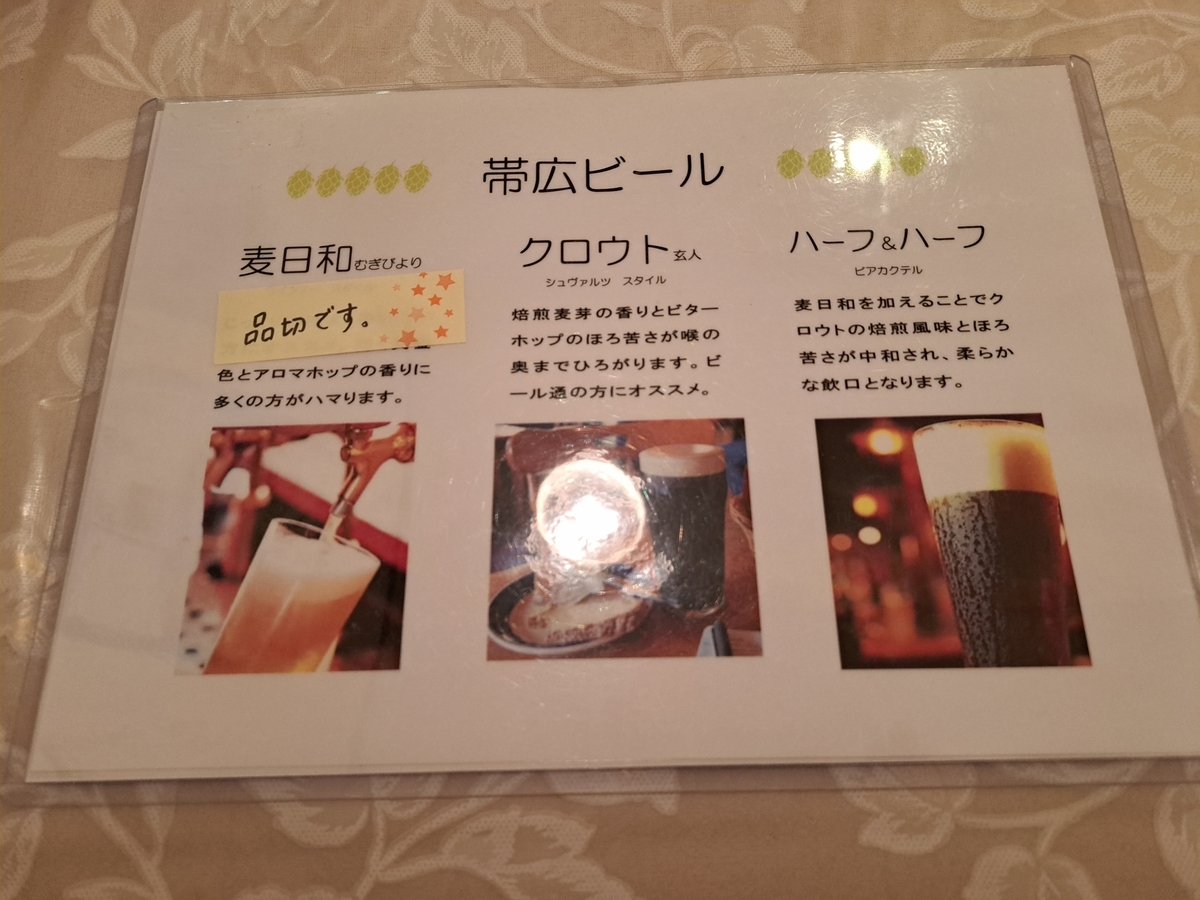 帯広ビール
麦日和 むぎびより
品切です。
色とアロマホップの香りに
多くの方がハマります。
クロウト 玄人
シュヴァルツ スタイル
焙煎麦芽の香りとビター
ホップのほろ苦さが喉の
奥までひろがります。ビ
ール通の方にオススメ。
ハーフ&ハーフ
ビアカクテル
麦日和を加えることでク
ロウトの焙煎風味とほろ
苦さが中和され、柔らか
な飲口となります。